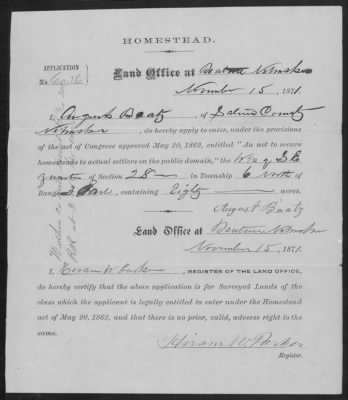 HOMESTEAD.
APPLICATION
No. 6026
Land Office at Beatrice Nebraska
November 15, 1871.
I, August Baatz, of Saline County
Nebraska, do hereby apply to enter, under the provisions
of the act of Congress approved May 20, 1862, entitled "An act to secure
homesteads to actual settlers on the public domain," the W½ of S.E.
quarter of Section 28 in Township 6 North of
Range 3 East, containing Eighty acres.
August Baatz
Land Office at Beatrice Nebraska
November 15, 1871.
I, Hiram W Parker, REGISTER OF THE LAND OFFICE,
do hereby certify that the above application is for Surveyed Lands of the
class which the applicant is legally entitled to enter under the Homestead
act of May 20, 1862, and that there is no prior, valid, adverse right to the
same.
Hiram W. Parker
Register.